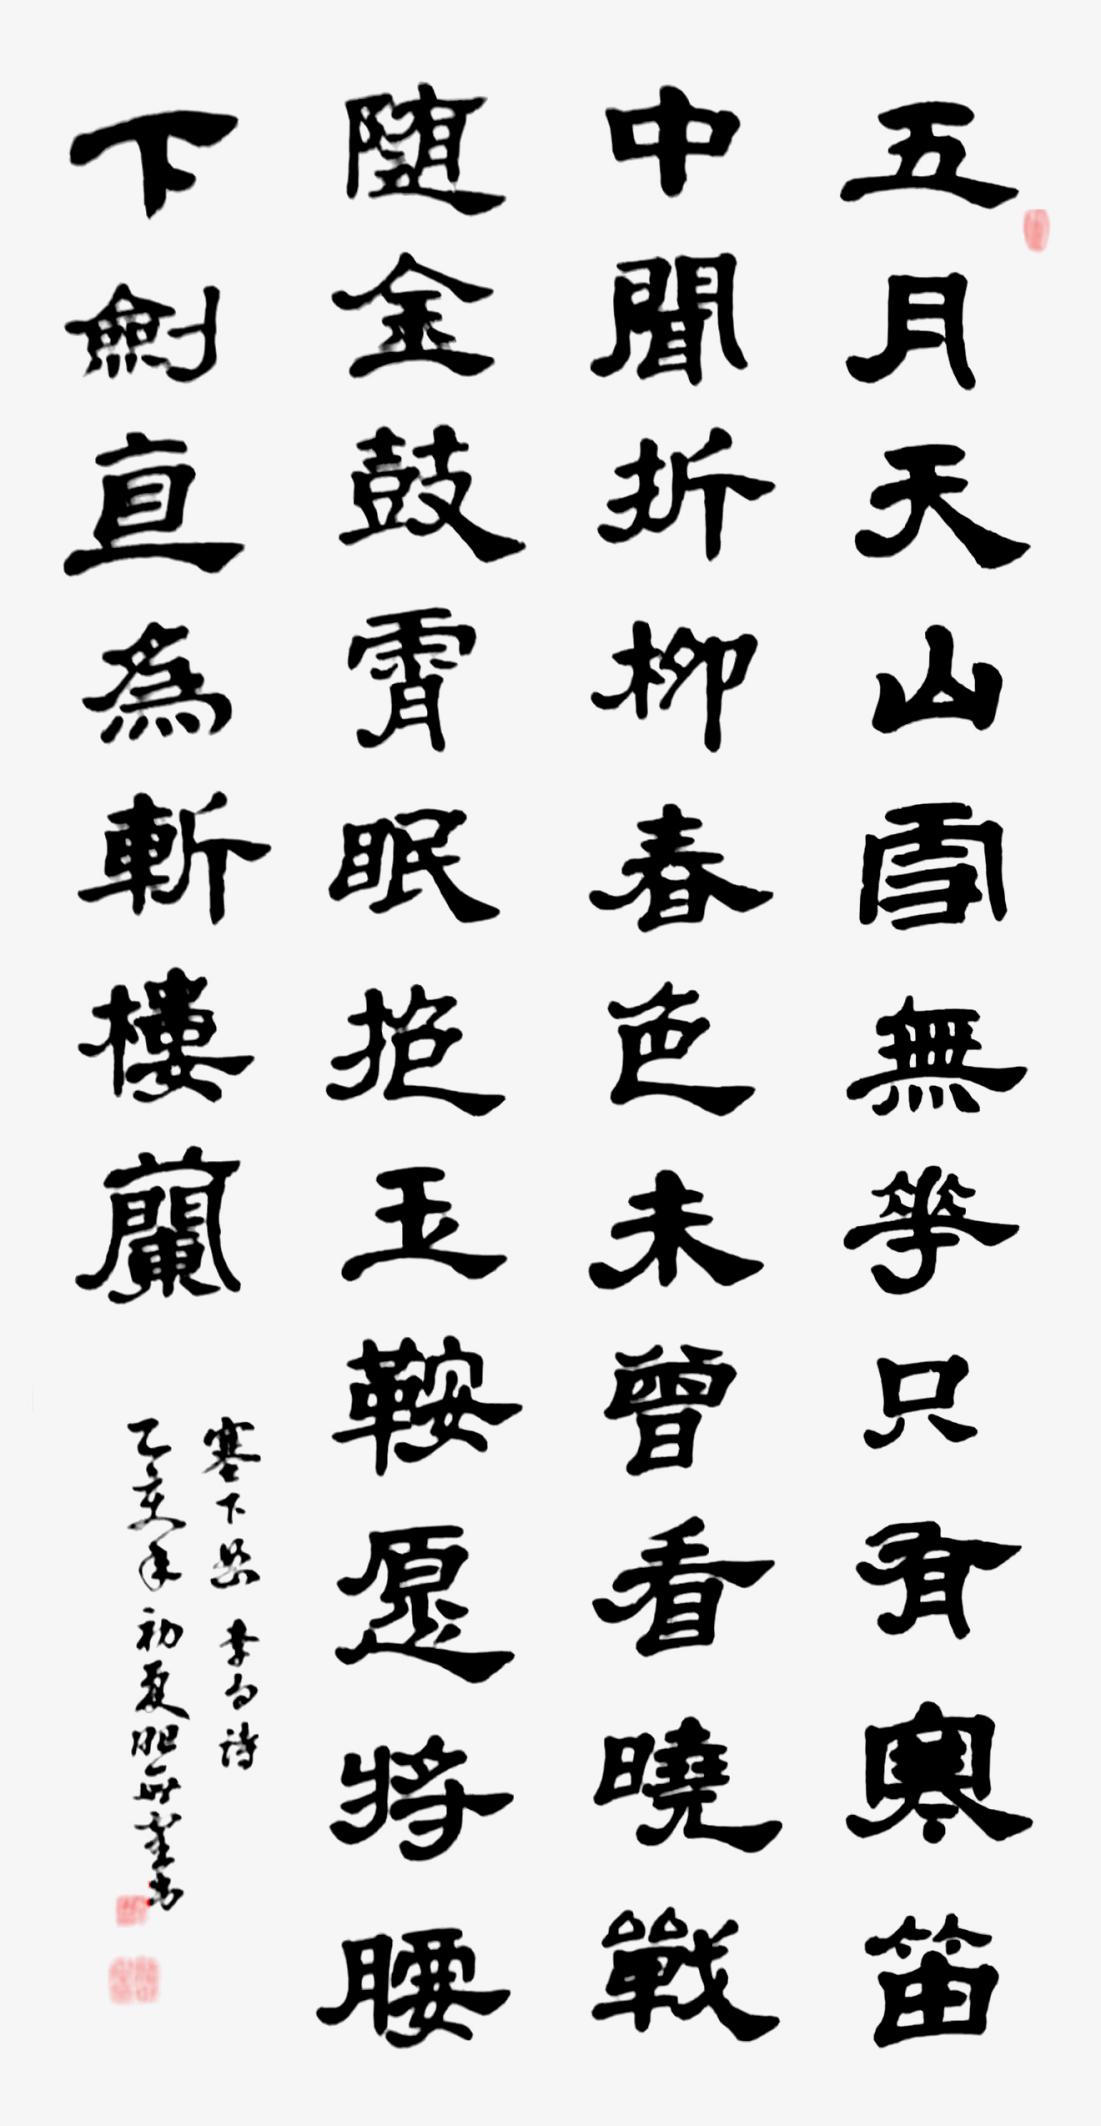 五月天山雪無花只有寒笛
中聞折柳春色未曾看曉戰
随金鼓霄眠抱玉鞍愿将腰
下劍直為斬樓蘭
塞下曲 李白詩
乙亥年初夏肥